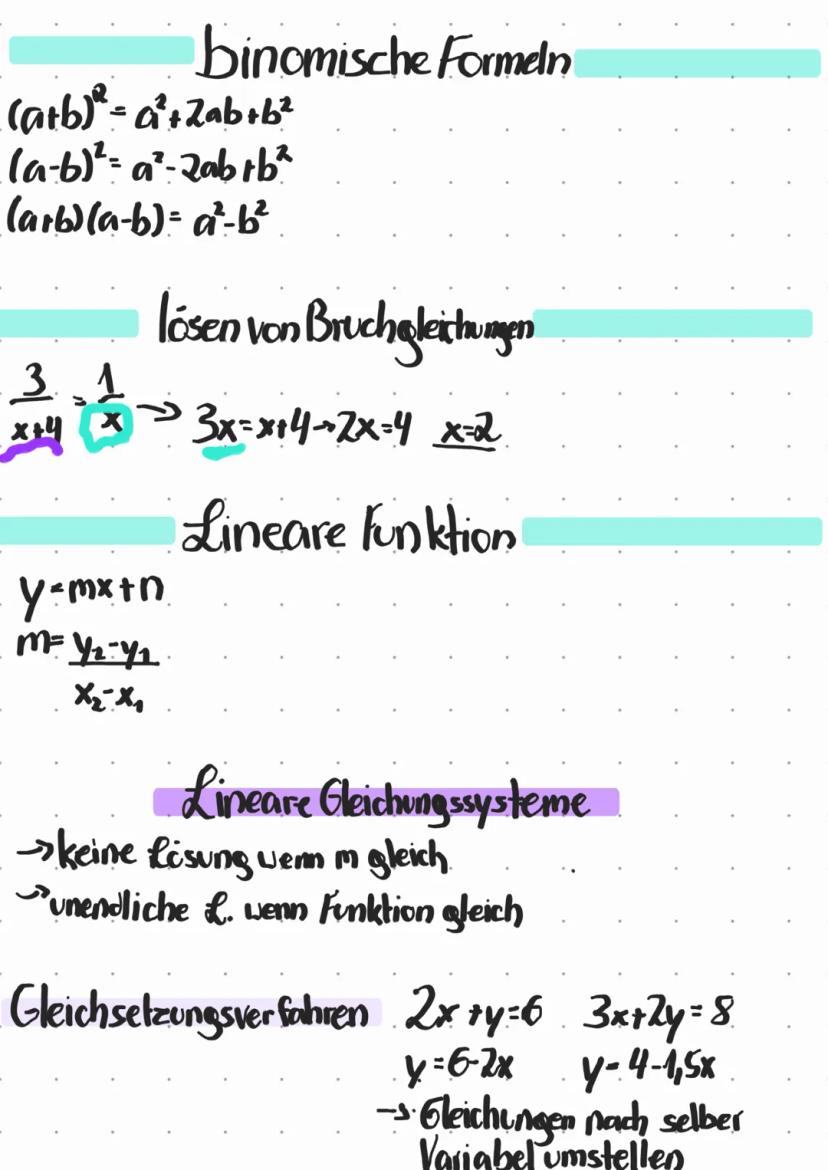 binomische Formeln
(a+b)² = a²+2ab+b²
(a-b)² = a²-2ab+b²
(a+b)(a-b) = a²-b²
lösen von Bruchgleichungen
3/(x+4) = 1/x → 3x=x+4→2x=4 x=2
Lineare Funktion
y=mx+n
m= (y₂-y₁)/(x₂-x₁)
Lineare Gleichungssysteme
→keine Lösung wenn m gleich
→unendliche L. wenn Funktion gleich
Gleichsetzungsverfahren 2x+y=6 3x+2y=8
y=6-2x y=4-1,5x
→ Gleichungen nach selber
Variabel umstellen